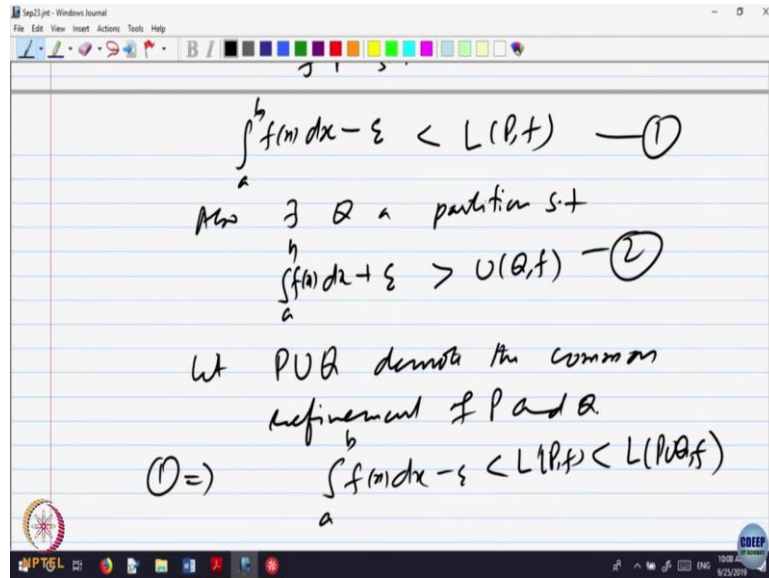 Sep23.jnt - Windows Journal
File Edit View Insert Actions Tools Help
B I
∫_a^b f(x) dx - ε < L(P,f) —①
Also ∃ Q a partition s.t
∫_a^b f(x) dx + ε > U(Q,f) -②
Let PUQ denote the common
refinement of P and Q.
①=) ∫_a^b f(x) dx - ε < L(P,f) < L(PUQ,f)
NPTEL
CDEEP
IIT BOMBAY
ENG
9/25/2019